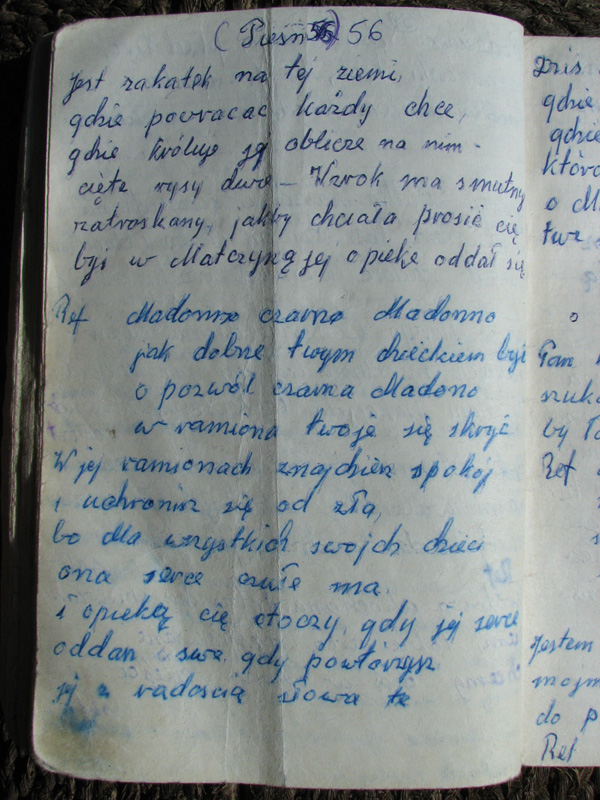 ( Pieśń 56) 56
Jest zakątek na tej ziemi,
gdzie powracac każdy chce,
gdzie króluje jej oblicze na nim -
cięte rysy dwie - Wzrok ma smutny
zatroskany, jakby chciała prosić cię
byś w Matczyną jej opiekę oddał się
Ref Madonno czarno Madonno
jak dobrze twym dzieckiem być
o pozwól czarna Madono
w ramiona twoje się skryć
W jej ramionach znajdziesz spokój
i uchronisz się od zła,
bo dla wszystkich swojch dzieci
ona serce czułe ma.
i opieką cię otoczy, gdy jej serce
oddasz swe, gdy powtórzysz
jej z radoscią słowa te
Dziś
gdzie,
gdzie
o M
Tam
szuk
by
Ref
Jestem
do p
Ref